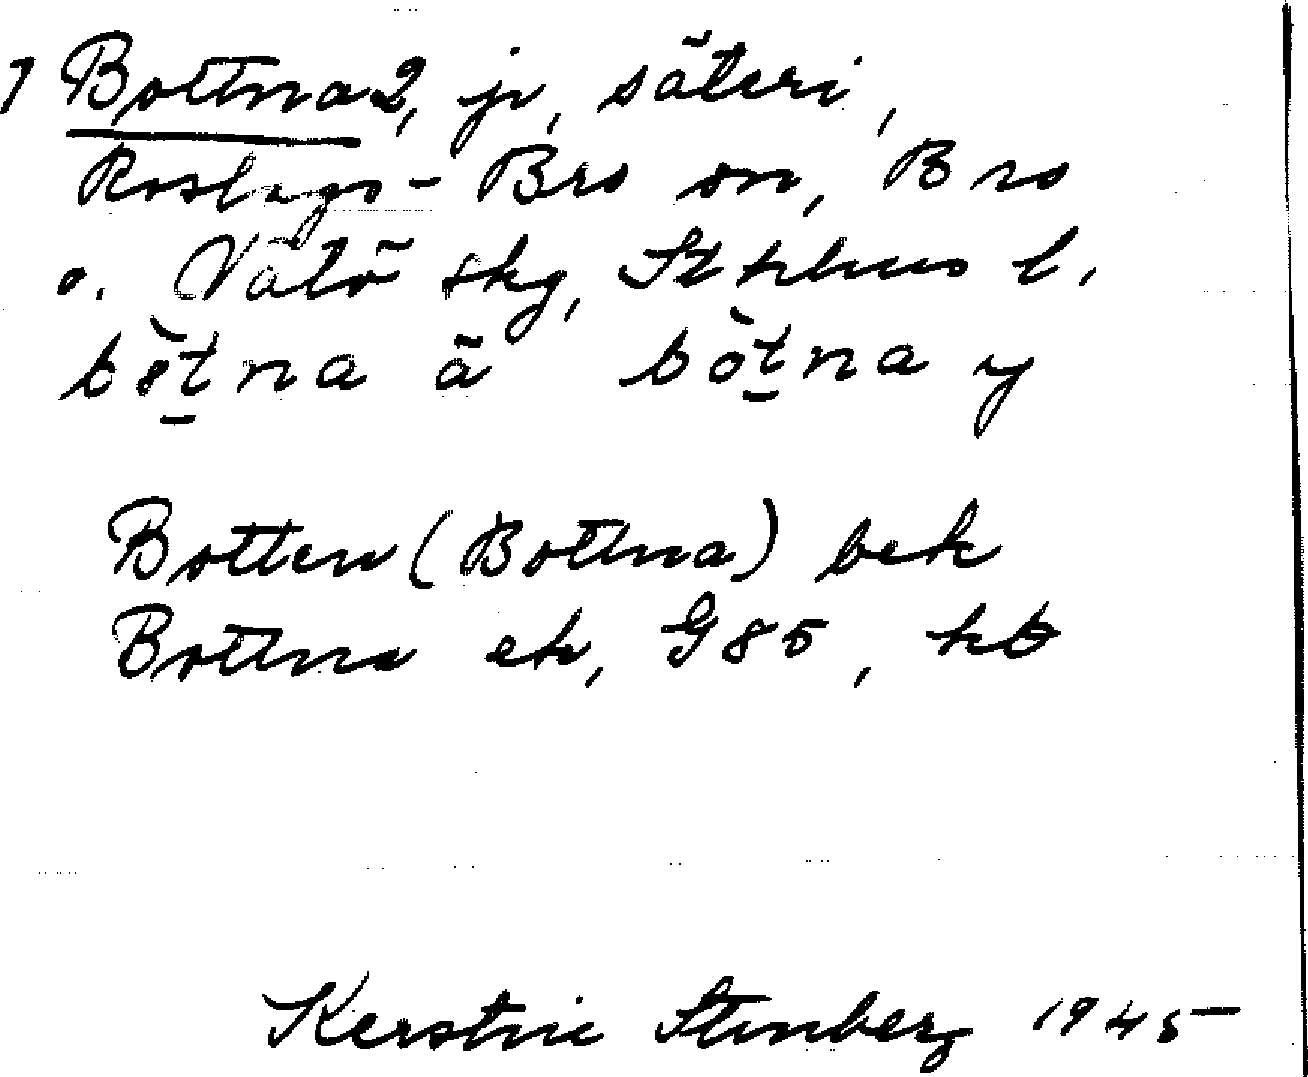 1 Bottna 2, jr, säteri,
Roslags-Bro sn, Bro
o. Vätö skg, Sthlms l.
bòtna ä bòtna y
Botten (Bottna) bek
Bottna ek, G 85, kb
Kerstin Stenberg 1945